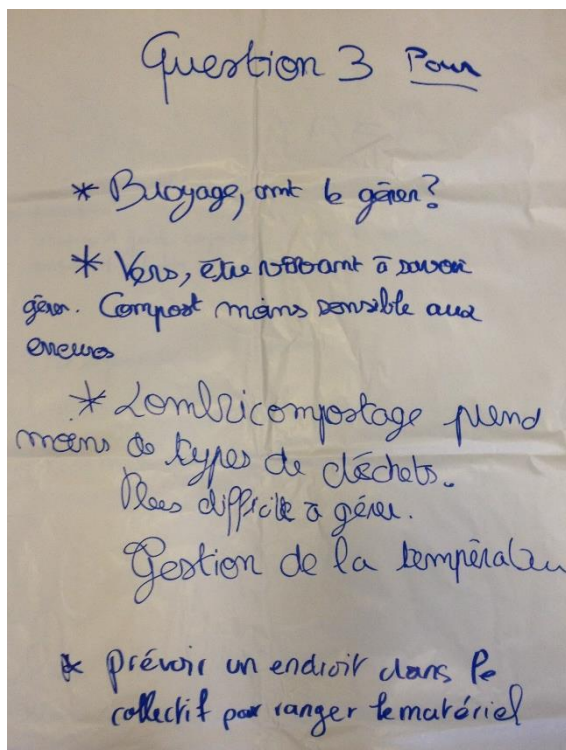 Question 3 Pour
* Broyage, cmt le gérer?
* Vers, être vivant à savoir
gérer. Compost moins sensible aux
erreurs
* Lombricompostage prend
moins de types de déchets.
Plus difficile à gérer.
Gestion de la température
* prévoir un endroit dans le
collectif pour ranger le matériel